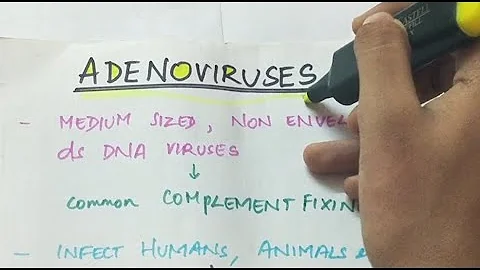 ADENOVIRUSES
- MEDIUM SIZED, NON ENVEL
ds DNA VIRUSES
↓
common COMPLEMENT FIXIN
- INFECT HUMANS, ANIMALS &